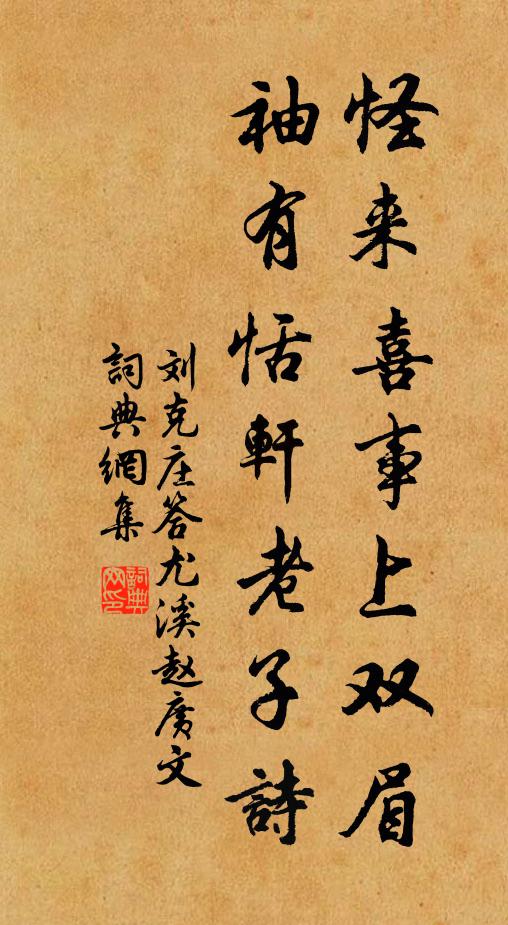 怪来喜事上双眉
袖有恬軒老子詩
刘克庄答尤溪赵廣文
詞典網集
詞典
网印